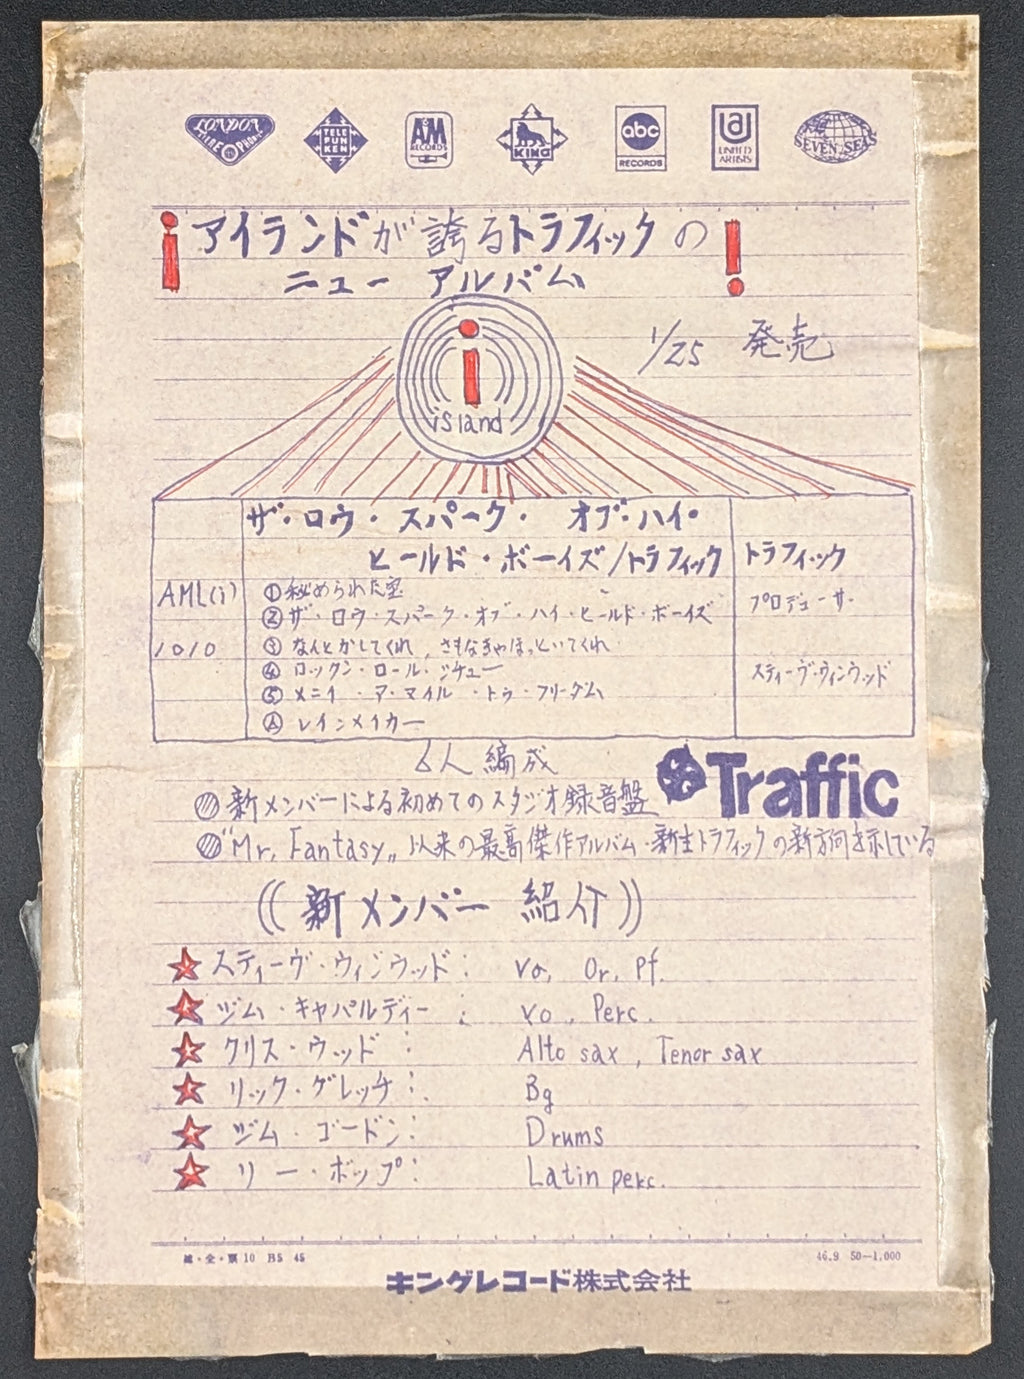 LONDON STEREO PHONIC
TELE FUN KEN
A&M RECORDS
KING
abc RECORDS
UA UNITED ARTISTS
SEVEN SEAS
¡ アイランドが誇るトラフィックの !
ニューアルバム
1/25 発売
i
island
ザ・ロウ・スパーク・オブ・ハイ・
ヒールド・ボーイズ/トラフィック
トラフィック
AML(i)
1010
①秘められた宝
②ザ・ロウ・スパーク・オブ・ハイ・ヒールド・ボーイズ
③なんとかしてくれ,さもなきゃほっといてくれ
④ロックン・ロール・シチュー
⑤メニイ・ア・マイル・トゥ・フリーダム
Ⓐレインメイカー
プロデューサー
スティーヴ・ウィンウッド
6人編成
Traffic
◎新メンバーによる初めてのスタジオ録音盤
◎"Mr. Fantasy„以来の最高傑作アルバム・新生トラフィックの新方向を示している
((新メンバー 紹介))
★スティーヴ・ウィンウッド: vo, Or, Pf.
★ジム・キャパルディー: vo, Perc.
★クリス・ウッド: Alto sax, Tenor sax
★リック・グレッチ: Bg
★ジム・ゴードン: Drums
★リー・ボップ: Latin perc.
・全・票10 B5 45
46.9 50-1,000
キングレコード株式会社